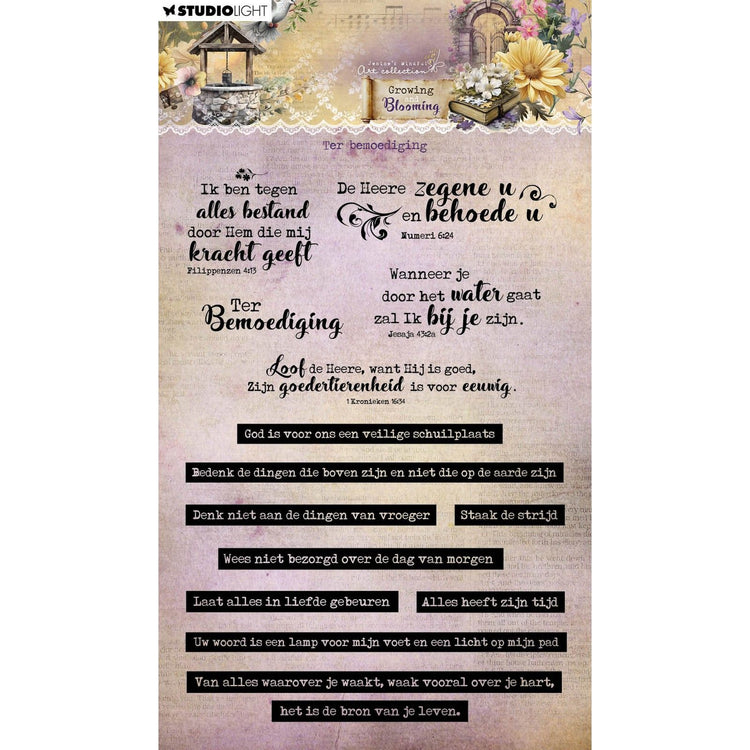 STUDIOLIGHT
Jenine's Mindful
Art collection
Growing
and
Blooming
Ter bemoediging
Ik ben tegen
alles bestand
door Hem die mij
kracht geeft
Filippenzen 4:13
De Heere Zegene u
en behoede u
Numeri 6:24
Wanneer je
door het water gaat
zal Ik bij je zijn.
Jesaja 43:2a
Ter
Bemoediging
Loof de Heere, want Hij is goed,
Zijn goedertierenheid is voor eeuwig.
1 Kronieken 16:34
God is voor ons een veilige schuilplaats
Bedenk de dingen die boven zijn en niet die op de aarde zijn
Denk niet aan de dingen van vroeger
Staak de strijd
Wees niet bezorgd over de dag van morgen
Laat alles in liefde gebeuren
Alles heeft zijn tijd
Uw woord is een lamp voor mijn voet en een licht op mijn pad
Van alles waarover je waakt, waak vooral over je hart,
het is de bron van je leven.